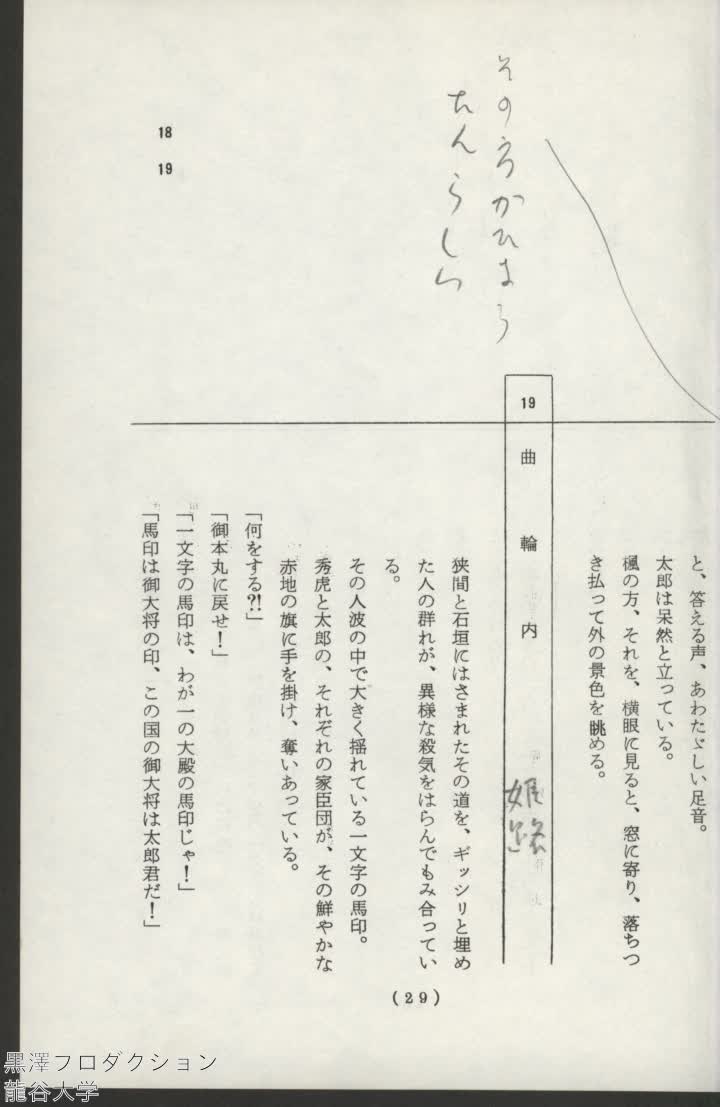 と、答える声、あわたゞしい足音。
太郎は呆然と立っている。
楓の方、それを、横眼に見ると、窓に寄り、落ちつ
き払って外の景色を眺める。
19 曲輪内
姫路
狭間と石垣にはさまれたその道を、ギッシリと埋め
た人の群れが、異様な殺気をはらんでもみ合ってい
る。
その人波の中で大きく揺れている一文字の馬印。
秀虎と太郎の、それぞれの家臣団が、その鮮やかな
赤地の旗に手を掛け、奪いあっている。
「何をする?!」
「御本丸に戻せ!」
「一文字の馬印は、わが一の大殿の馬印じゃ!」
「馬印は御大将の印、この国の御大将は太郎君だ!」
18
19
(29)
黒澤プロダクション
龍谷大学